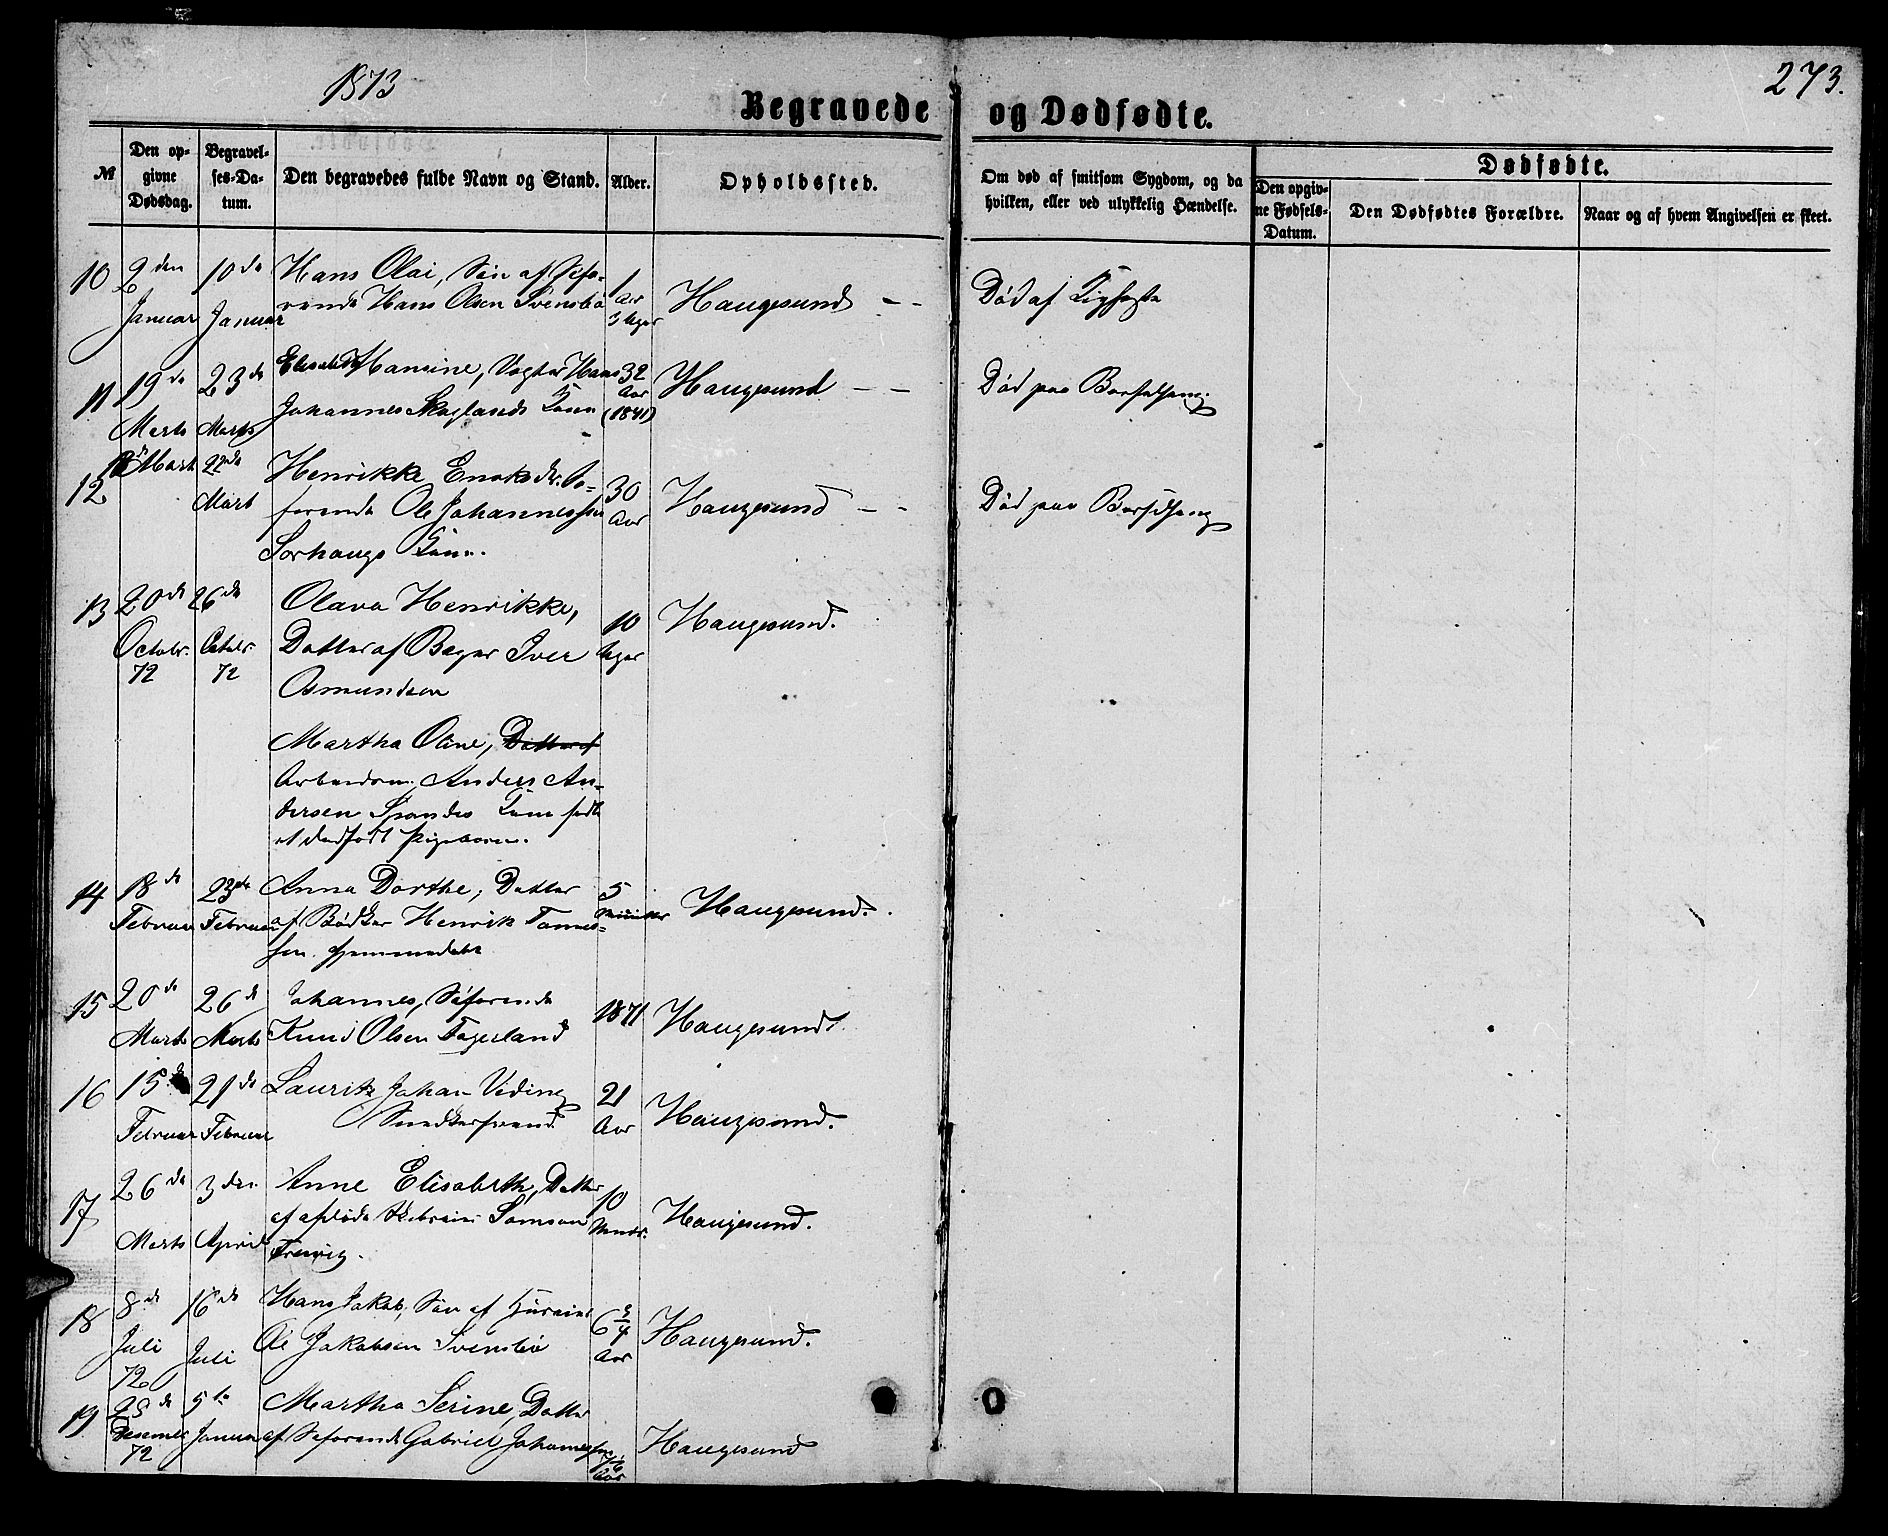 1873
273.
Begravede og Dødfødte.
№
Den opgivne Dødsdag.
Begravelses-Datum.
Den begravedes fulde Navn og Stand.
Alder.
Opholdssted.
Om død af smitsom Sygdom, og da hvilken, eller ved ulykkelig Hændelse.
Dødfødte.
Den opgivne Fødsels-Datum.
Den Dødfødtes Forældre.
Naar og af hvem Angivelsen er skeet.
10 2den Januar 10de Januar
Hans Olai, Søn af Søfa-
rende Hans Olsen Svensbø
1 Aar 3 Uger
Haugesund - -
Død af
11 19de Marts 23de Marts
Elisabeth Hansine, Hans
Johannes Skoglands Kone
32 Aar (1841)
Haugesund - -
Død paa Barselseng
12 Mart 22de Mart
Henrikke Enoksdr. Sø-
farende Ole Johannessen
Sørhaugs Kone.
30 Aar
Haugesund - -
Død paa Barselseng
13 20de Octobr. 72 26de Octobr. 72
Olava Henrikke,
Datter af Bager Iver
Osmundsen
10 Uger
Haugesund.
Martha Oline, Datter af
Arbeidsm. Anders An-
dersen Kone født
et dødfødt Pigebarn.
14 18de Februar 23de Februar
Anna Dorthe, Datter
af Bødker Henrik Tønnes-
sen. Hjemmedøbt
5
Haugesund.
15 20de Marts 26de Marts
Johannes, Søfarende
Knud Olsen Fagerland
1871
Haugesund.
16 15de Februar 21de Februar
Lauritz Johan
Snedkersvend
21 Aar
Haugesund.
17 26de Marts 3den April
Anne Elisabeth, Datter
af afdøde Samson
10 Maan.
Haugesund.
18 8de Juli 72 16de Juli
Hans Jakob, Søn af
Ole Jakobsen Svensbø
6 3/4 Aar
Haugesund.
19 Desember 72 5te Januar
Martha Serine, Datter
af Søfarende Gabriel Johannessen
Aar
Haugesund